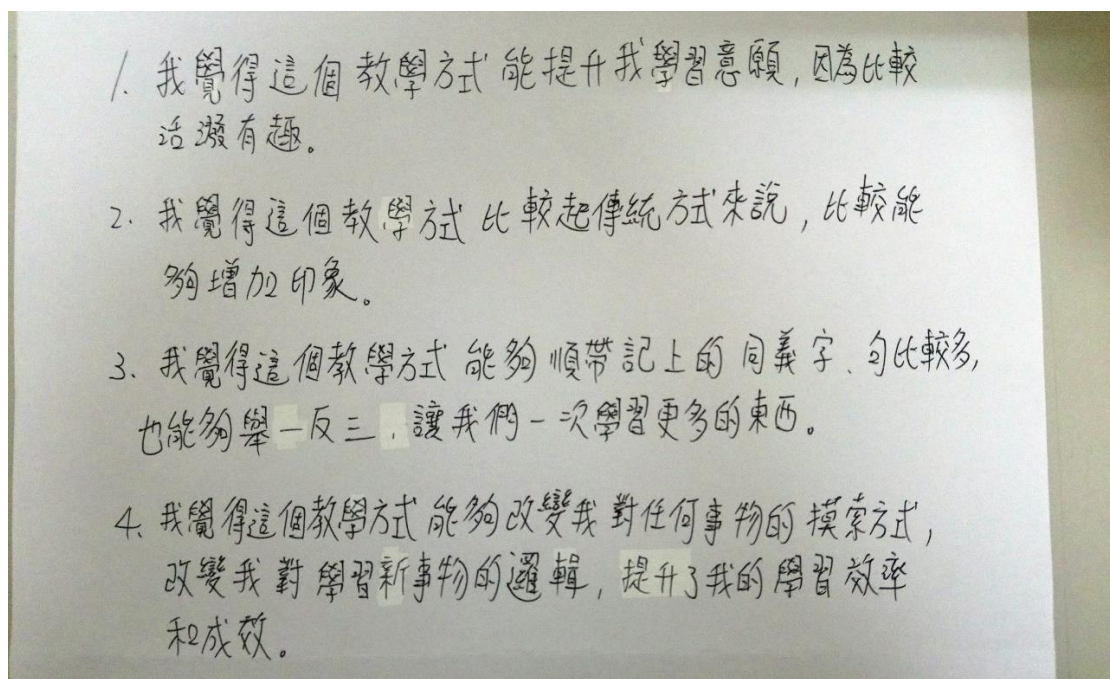 1. 我覺得這個教學方式能提升我學習意願,因為比較
活潑有趣。
2. 我覺得這個教學方式比較起傳統方式來說,比較能
夠增加印象。
3. 我覺得這個教學方式能夠順帶記上的同義字、句比較多,
也能夠舉一反三,讓我們一次學習更多的東西。
4. 我覺得這個教學方式能夠改變我對任何事物的摸索方式,
改變我對學習新事物的邏輯,提升了我的學習效率
和成效。